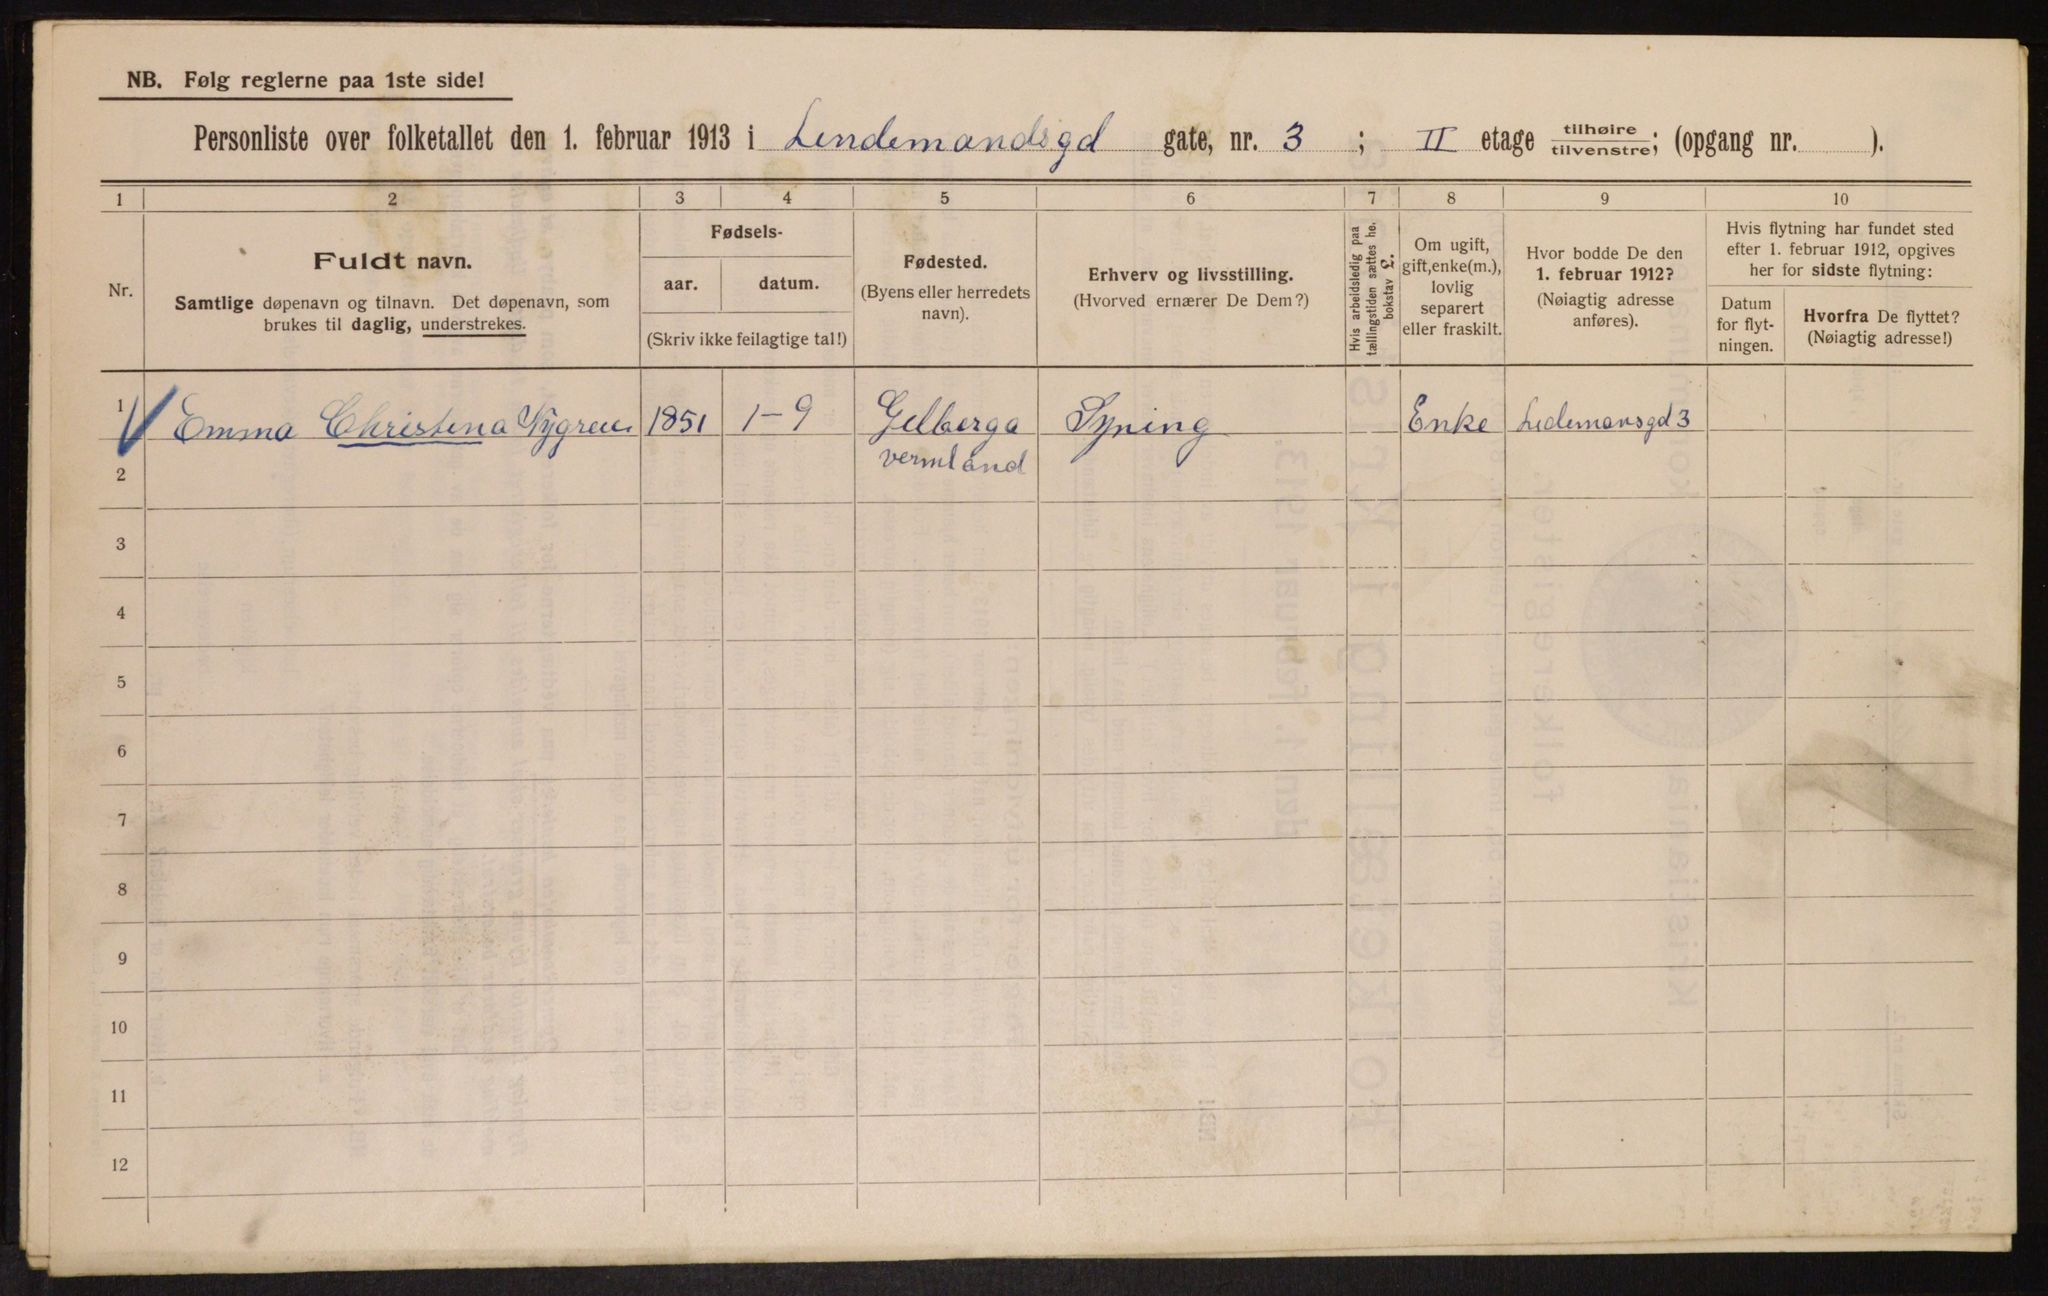 NB. Følg reglerne paa 1ste side!
Personliste over folketallet den 1. februar 1913 i Lendemandsgd gate, nr. 3 ; II etage tilhøire tilvenstre; (opgang nr. ).
1 2 3 4 5 6 7 8 9 10
Nr.
Fuldt navn.
Samtlige døpenavn og tilnavn. Det døpenavn, som
brukes til daglig, understrekes.
Fødsels-
aar. datum.
(Skriv ikke feilagtige tal!)
Fødested.
(Byens eller herredets
navn).
Erhverv og livsstilling.
(Hvorved ernærer De Dem?)
Hvis arbeidsledig paa
tællingstiden sættes he.
bokstav L.
Om ugift,
gift, enke(m.),
lovlig
separert
eller fraskilt.
Hvor bodde De den
1. februar 1912?
(Nøiagtig adresse
anføres).
Hvis flytning har fundet sted
efter 1. februar 1912, opgives
her for sidste flytning:
Datum
for flyt-
ningen.
Hvorfra De flyttet?
(Nøiagtig adresse!)
1 Emma Christena Nygren 1851 1-9 Gelberga Syning Enke Ledemansgd 3
2 vermland
3
4
5
6
7
8
9
10
11
12